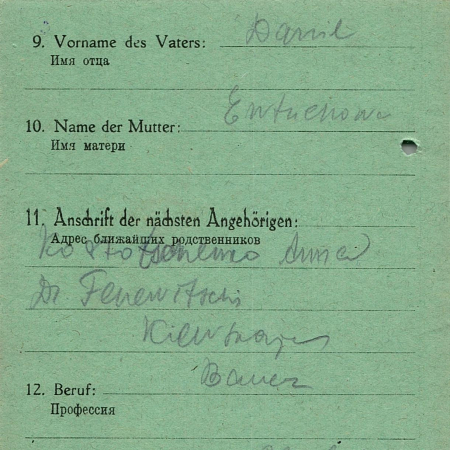 9. Vorname des Vaters: Danil
Имя отца
10. Name der Mutter:
Имя матери
11. Anschrift der nächsten Angehörigen:
Адрес ближайших родственников
Anna
Kiewskaja
Bauer
12. Beruf:
Профессия